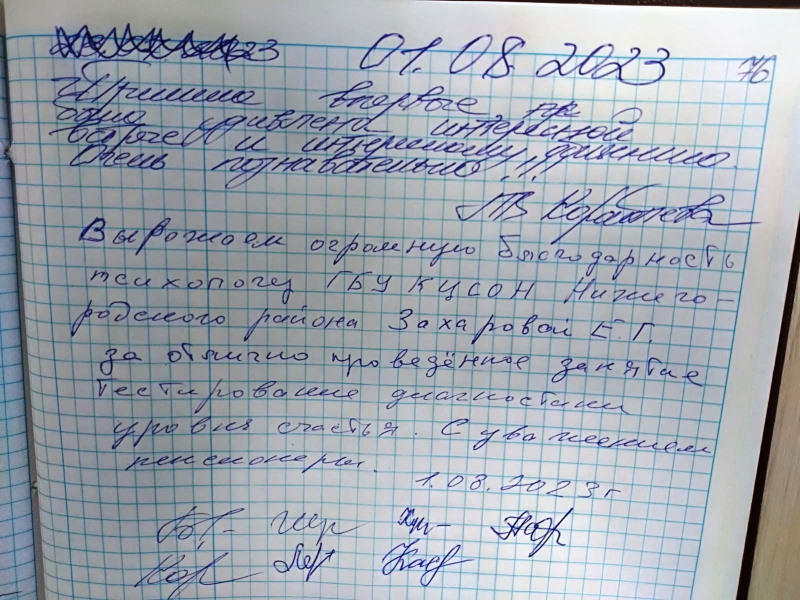 01.08.2023 76
Пришла впервые
была удивлена интересной
встрече и интересному общению.
Очень познавательно!!!
ТВ
Выражаем огромную благодарность
психологу ГБУ КЦСОН Нижего-
родского района Захаровой Е.Г.
за отлично проведённое занятие
тестирование диагностики
уровня счастья. С уважением
пенсионеры.
1.08.2023 г